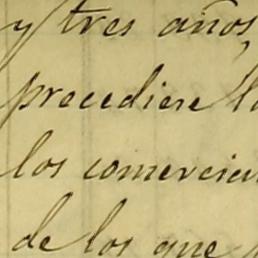 y tres años,
precediere l
los comercia
de los que